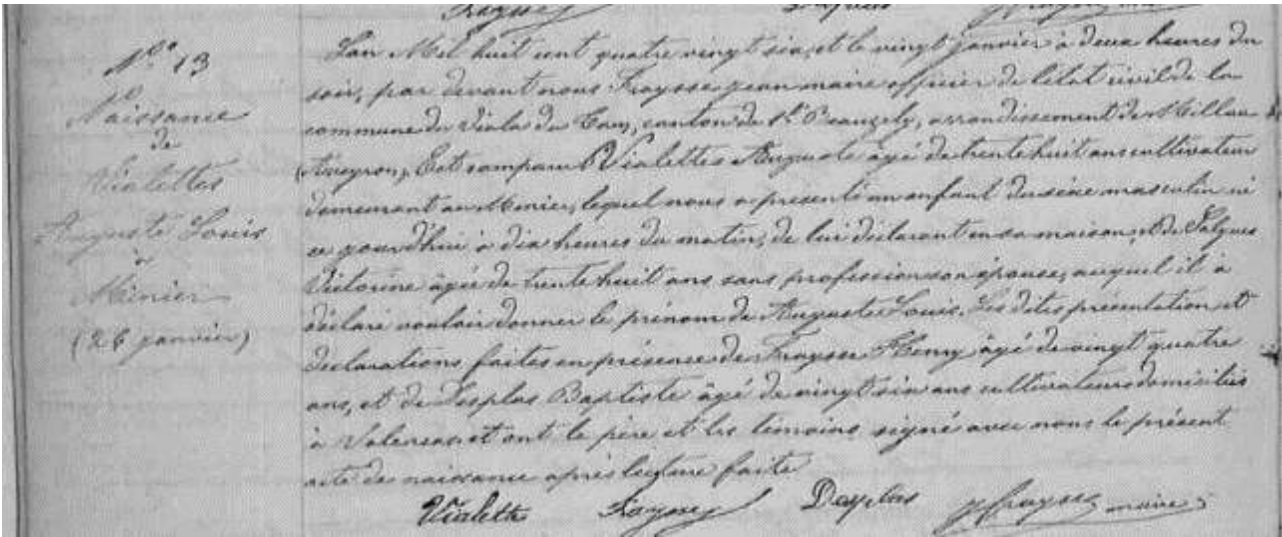 Fraysse Desplas J Fraysse maire
N° 13
Naissance
de
Vialettes
Auguste Louis
à
Minier
(26 janvier)
L'an Mil huit cent quatre vingt six, et le vingt janvier à deux heures du
soir, par devant nous Fraysse jean maire officier de l'etat civil de la
commune du Viala du Tarn, canton de St Beauzely, arrondissement de Millau
(Aveyron) Est comparu Vialettes Auguste âgé de trente huit ans cultivateur
demeurant au Minier, lequel nous a présenté un enfant du sèxe masculin né
ce jourd'hui à dix heures du matin, de lui déclarant en sa maison, et de
Victorine âgée de trente huit ans sans profession son épouse, auquel il à
déclaré vouloir donner le prénom de Auguste Louis. Les dites présentation et
declarations faites en présence de Fraysse Henry âgé de vingt quatre
ans, et de Desplas Baptiste âgé de vingt six ans cultivateurs domiciliés
à et ont le père et les témoins signé avec nous le présent
acte de naissance après lecture faite
Vialette Fraysse Desplas J Fraysse maire